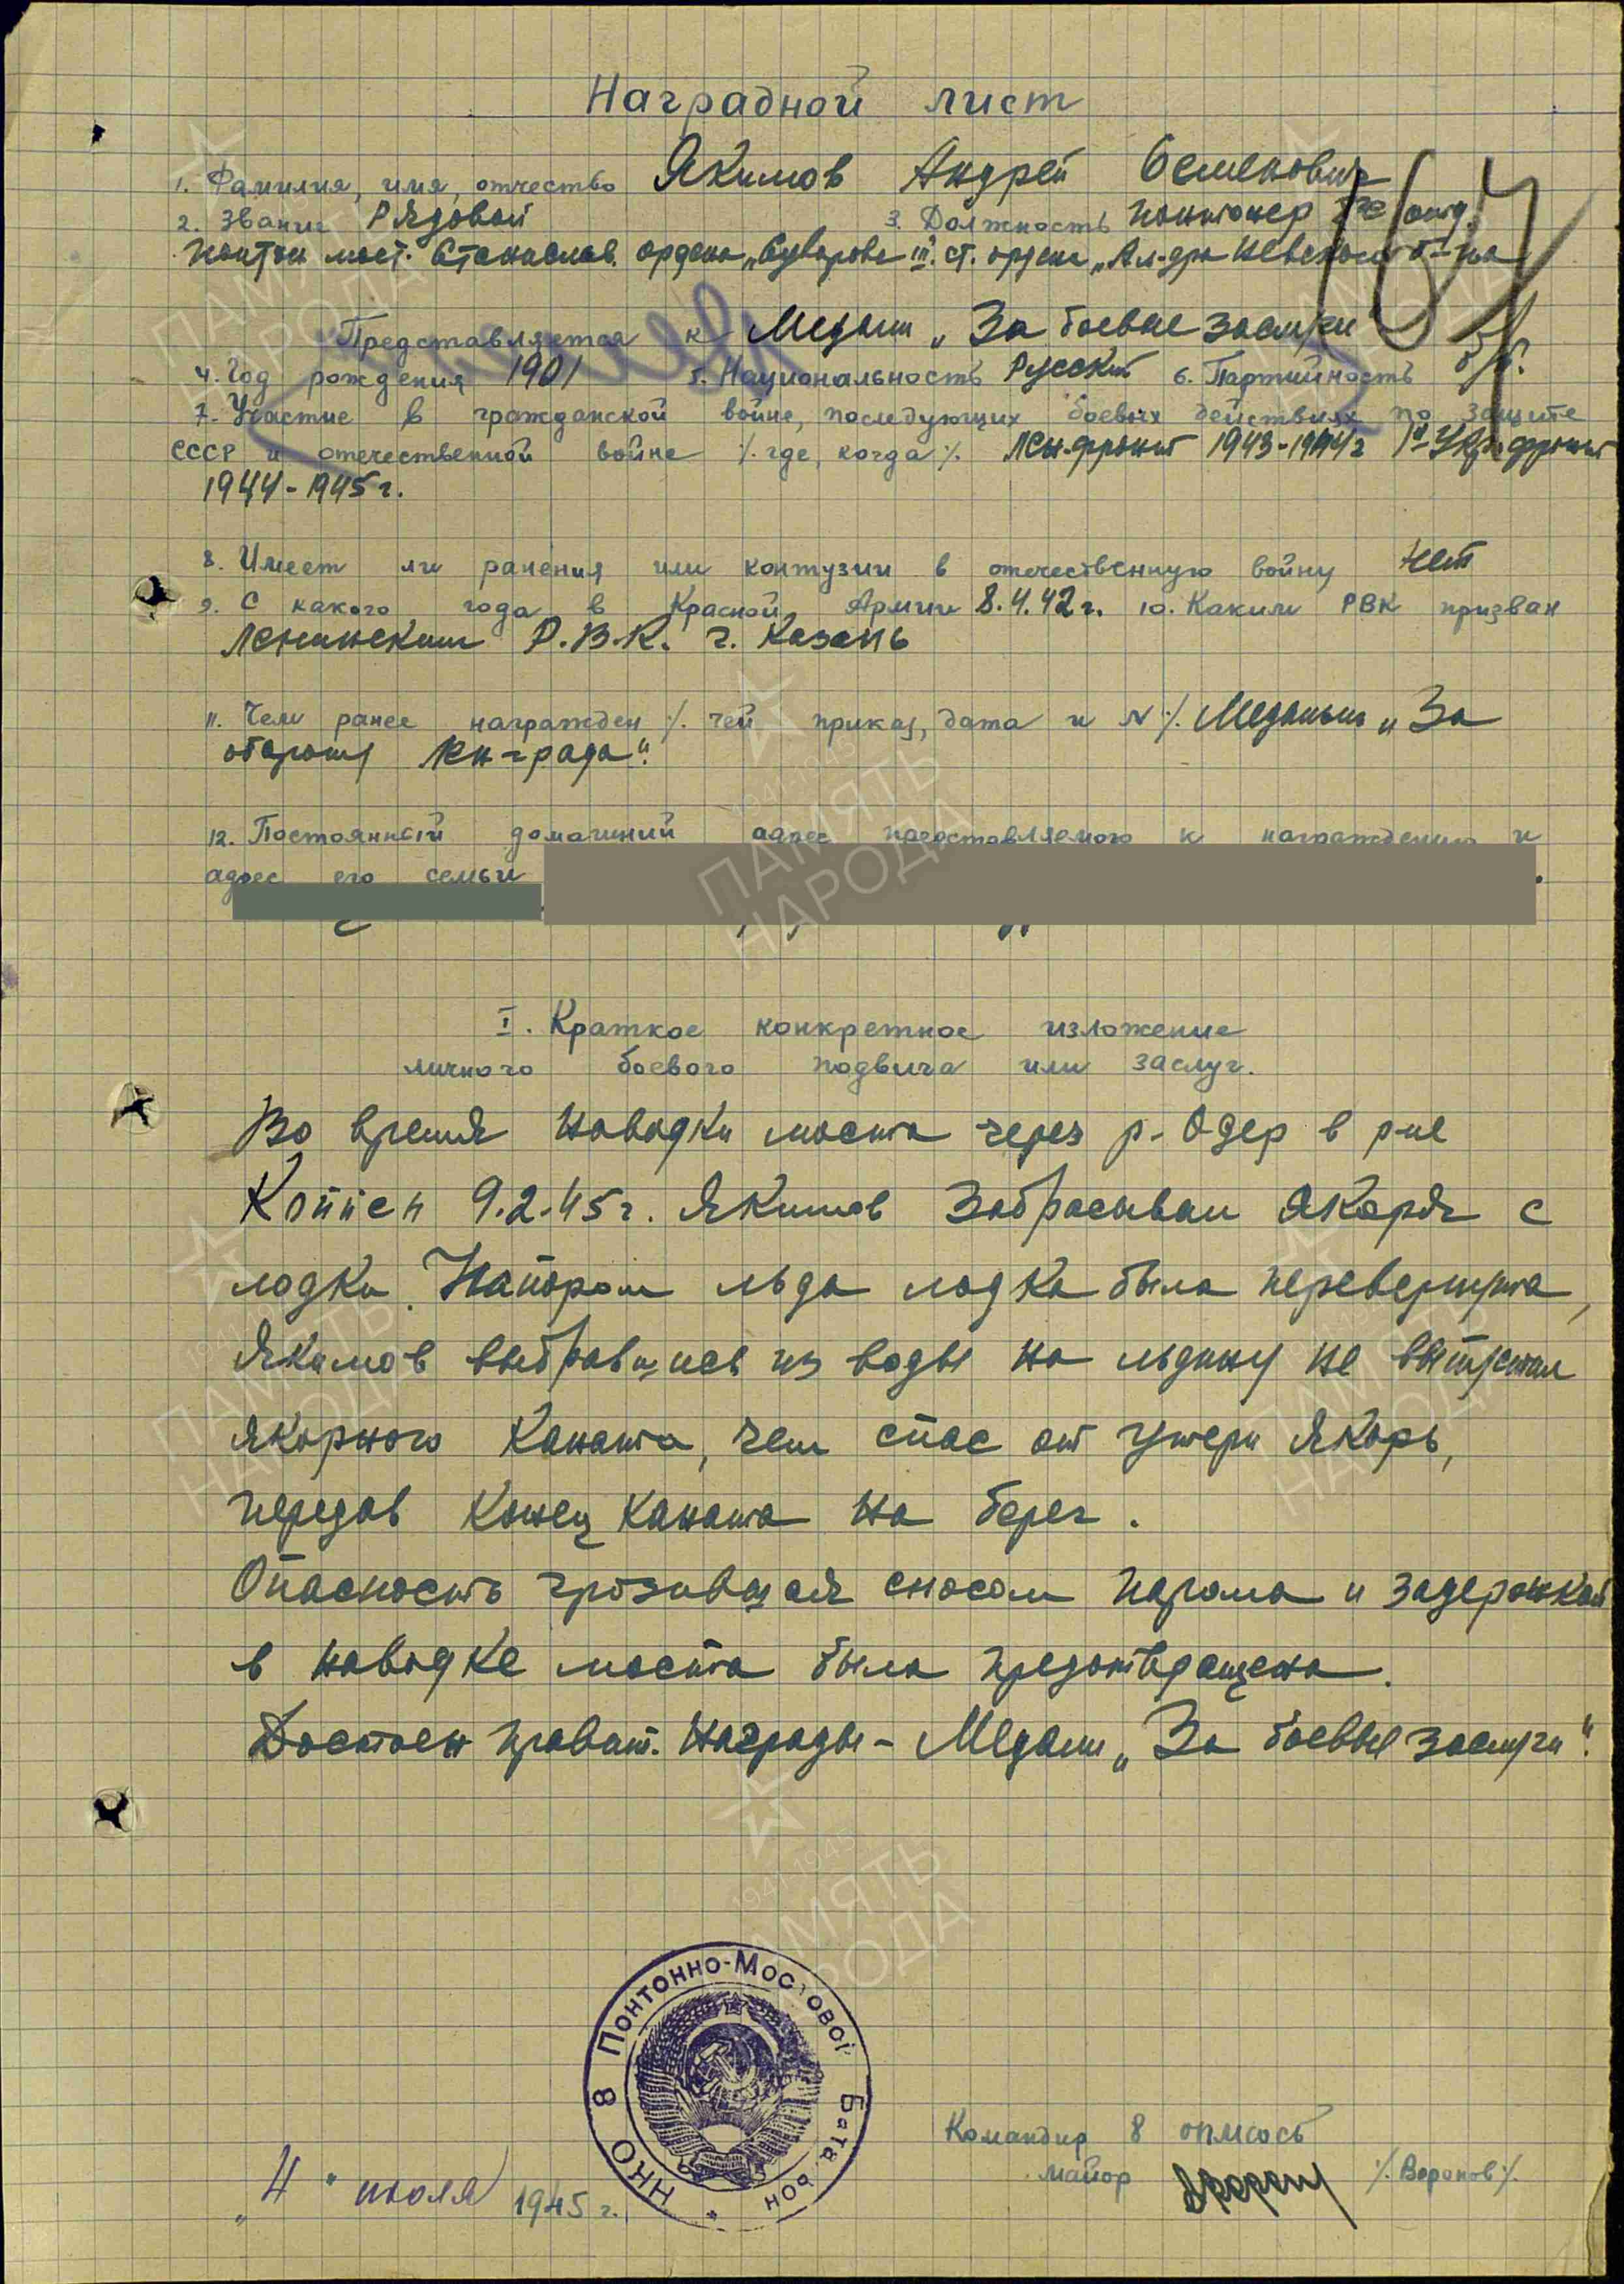 Наградной лист
1. Фамилия, имя, отчество Якимов Андрей Семенович
2. Звание Рядовой 3. Должность понтонер 8го отд.
понтон. мост. Станислав. ордена „Суворова" III ст. ордена „Ал-дра Невского" б-на
104
Представляется к Медали „За боевые заслуги"
4. Год рождения 1901 5. Национальность Русский 6. Партийность б/п.
7. Участие в гражданской войне, последующих боевых действиях по защите
СССР и отечественной войне %. где, когда %. Лен.фронт 1943-1944г 1й Укр.фронт
1944-1945г.
8. Имеет ли ранения или контузии в отечественную войну нет
9. С какого года в Красной Армии 8.4.42г. 10. Каким РВК призван
Ленинским Р.В.К. г. Казань
11. Чем ранее награжден %. чей приказ, дата и N %. Медалью „За
оборону Лен-града".
12. Постоянный домашний адрес представляемого к награждению и
адрес его семьи
I. Краткое конкретное изложение
личного боевого подвига или заслуг.
Во время наводки моста через р. Одер в р-не
Коппен 9.2.45г. Якимов забрасывал якоря с
лодки. Напором льда лодка была перевернута,
Якимов выбравшись из воды на льдину не выпустил
якорного каната, чем спас от утери якорь,
передав конец каната на берег.
Опасность грозившая сносом парома и задержкой
в наводке моста была предотвращена.
Достоен правит. награды - Медали „За боевые заслуги".
НКО 8 Понтонно-Мостовой Батальон
Командир 8 опмосб
майор %. Воронов %.
„4" июля 1945 г.
ПАМЯТЬ
НАРОДА
1941-1945